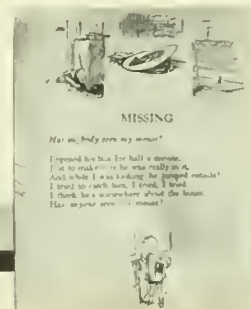 MISSING
Has anybody seen my mouse?
I opened his box for half a minute,
Just to make sure he was really in it,
And while I was looking, he jumped outside!
I tried to catch him, I tried, I tried
I think he's somewhere about the house.
Has anyone seen mouse?